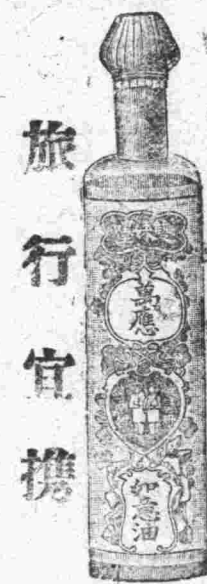 旅行宜携
萬應
如意油